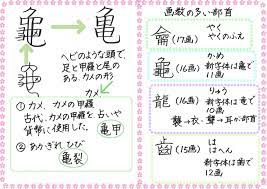 龜 → 亀
ヘビのような頭で、
足と甲羅と尾の
ある、カメの形
カメ
① カメ、カメの甲羅
古代、カメの甲羅を占いや
貨幣に使用した。
亀甲
② あかぎれ、ひび
亀裂
画数の多い部首
龠 (17画)
やく
やくのふえ
龜 (16画)
かめ
新字体は亀で
11画
龍 (16画)
りゅう
新字体は竜で
10画
襲→衣、聾→耳が部首
齒 (15画)
は
はへん
新字体は歯で
12画